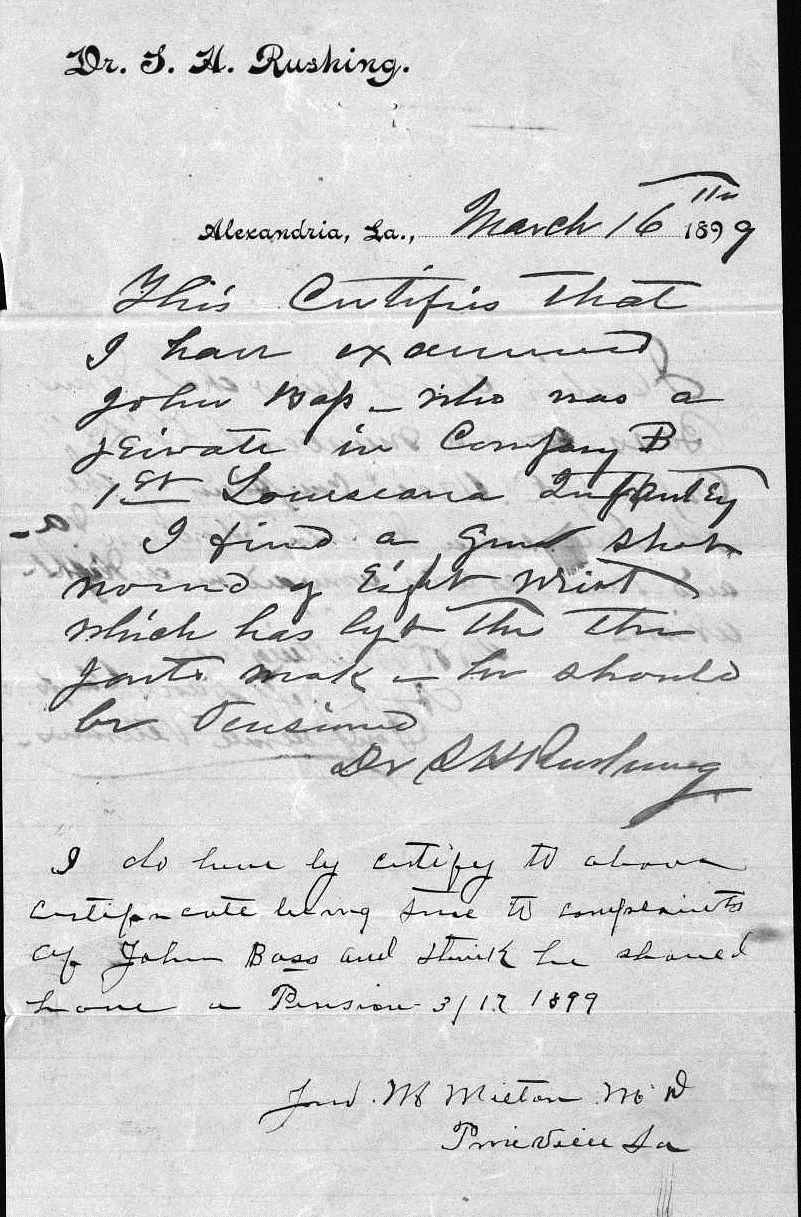 Dr. S. H. Rushing.
Alexandria, La., March 16 11th 1899
This Certifies that
I have examined
John Bass – who was a
private in Company B
1st Louisiana Infantry
I find a Gun Shot
wound of Right Wrist
which has left the
joints weak – he should
be Pensioned
Dr S H Rushing
I do here by certify to above
certificate being true to complaints
of John Bass and think he should
have a Pension 3/17 1899
Jno. M Milton M D
Pineville La